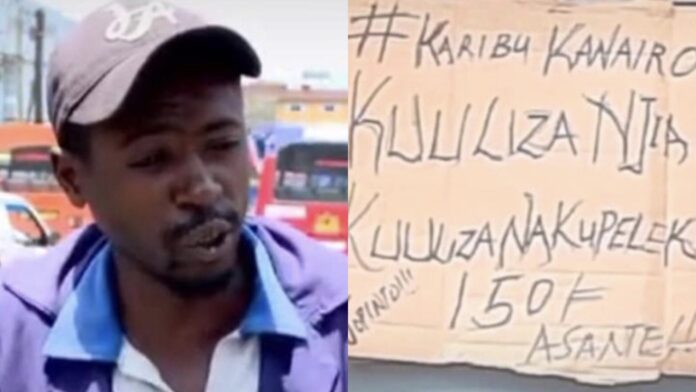 #KARIBU KANAIRO
KUULIZA NJIA
KUULIZA NA KUPELEK
150F
ASANTE!!